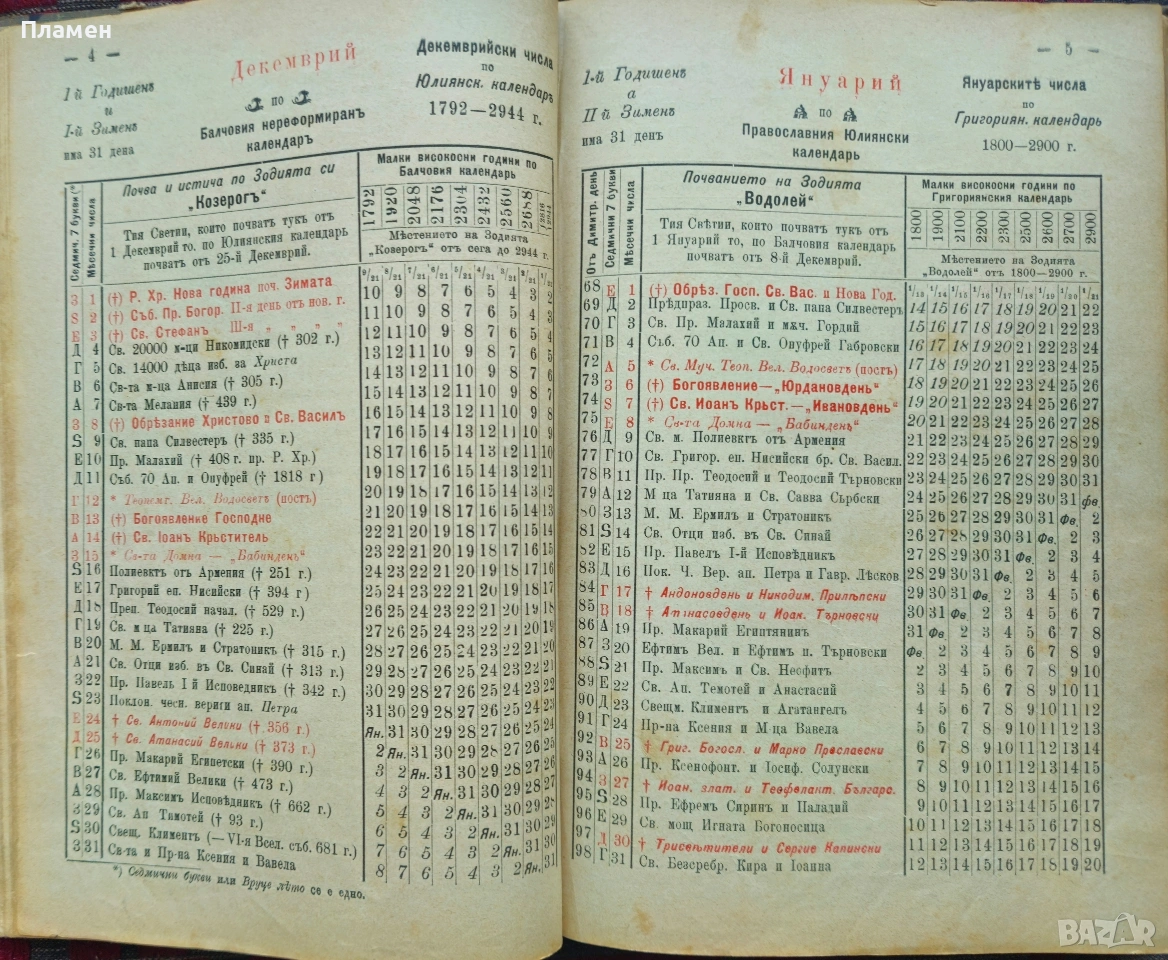 Пламен
— 4 —
1й Годишенъ
и
I-й Зименъ
има 31 дена
Декемврий
по
Балчовия нереформиранъ
календаръ
Декемврийски числа
по
Юлиянск. календаръ
1792—2944 г.
Седмич. 7 букви (*
Мѣсечни числа
Почва и истича по Зодията си
„Козерогъ“
Тия Светии, които почват тукъ отъ
1 Декемврий то. по Юлиянския календаръ
почватъ отъ 25-й Декемврий.
Малки високосни години по
Балчовия календаръ
1792 1920 2048 2176 2304 2432 2560 2688 2816 2944
Мѣстението на Зодията
„Козерогъ“ отъ сега до 2944 г.
9/21 8/21 7/21 6/21 5/21 4/21 3/21 2/21 1/21
З 1 (†) Р. Хр. Нова година поч. Зимата 10 9 8 7 6 5 4 3 2
S 2 (†) Съб. Пр. Богор. II-я день отъ нов. г. 11 10 9 8 7 6 5 4 3
Е 3 (†) Св. Стефанъ III-я „ „ „ „ 12 11 10 9 8 7 6 5 4
Д 4 Св. 20000 м-ци Никомидски († 302 г.) 13 12 11 10 9 8 7 6 5
Г 5 Св. 14000 дѣца изб. за Христа 14 13 12 11 10 9 8 7 6
В 6 Св-та м-ца Анисия († 305 г.) 15 14 13 12 11 10 9 8 7
А 7 Св-та Мелания († 439 г.) 16 15 14 13 12 11 10 9 8
З 8 (†) Обрѣзание Христово и Св. Василъ 17 16 15 14 13 12 11 10 9
S 9 Св. папа Силвестеръ († 335 г.) 18 17 16 15 14 13 12 11 10
Е 10 Пр. Малахий († 408 г. пр. Р. Хр.) 19 18 17 16 15 14 13 12 11
Д 11 Съб. 70 Ап. и Онуфрей († 1818 г) 20 19 18 17 16 15 14 13 12
Г 12 * Теопемт. Вел. Водосветъ (постъ) 21 20 19 18 17 16 15 14 13
В 13 (†) Богоявление Господне 22 21 20 19 18 17 16 15 14
А 14 (†) Св. Іоанъ Кръститель 23 22 21 20 19 18 17 16 15
З 15 * Св-та Домна — „Бабинденъ“ 24 23 22 21 20 19 18 17 16
S 16 Полиевктъ отъ Армения († 251 г.) 25 24 23 22 21 20 19 18 17
Е 17 Григорий еп. Нисийски († 394 г) 26 25 24 23 22 21 20 19 18
Д 18 Преп. Теодосий начал. († 529 г.) 27 26 25 24 23 22 21 20 19
Г 19 Св. м ца Татияна († 225 г.) 28 27 26 25 24 23 22 21 20
В 20 М. М. Ермил и Стратоникъ († 315 г.) 29 28 27 26 25 24 23 22 21
А 21 Св. Отци изб. въ Св. Синай († 313 г.) 30 29 28 27 26 25 24 23 22
З 22 Пр. Павелъ I й Исповедникъ († 342 г.) 31 30 29 28 27 26 25 24 23
S 23 Поклон. чесн. вериги ап. Петра
Е 24 † Св. Антоний Велики († 356 г.) Ян. 31 30 29 28 27 26 25 24
Д 25 † Св. Атанасий Велики († 373 г.) 2 Ян. 31 30 29 28 27 26 25
Г 26 Пр. Макарий Египетски († 390 г.) 3 2 Ян. 31 30 29 28 27 26
В 27 Св. Ефтимий Велики († 473 г.) 4 3 2 Ян. 31 30 29 28 27
А 28 Пр. Максим Исповѣдникъ († 662 г.) 5 4 3 2 Ян. 31 30 29 28
З 29 Св. Ап Тамотей († 93 г.) 6 5 4 3 2 Ян. 31 30 29
S 30 Свещ. Климентъ (—VI-я Всел. съб. 681 г.) 7 6 5 4 3 2 Ян. 31 30
З 31 Св-та и Пр-на Ксения и Вавела 8 7 6 5 4 3 2 Ян. 31
*) Седмични букви или Вруце лѣто се е едно.
— 5 —
1-й Годишенъ
а
IIй Зименъ
има 31 денъ
Януарий
по
Православния Юлиянски
календарь
Януарскитѣ числа
по
Григориян. календарь
1800—2900 г.
Отъ Димитр. день
Седмични 7 букви
Мѣсечни числа
Почванието на Зодията
„Водолей“
Тия Свѣтии, които почват тукъ отъ
1 Януарий то, по Балчовия календарь
почватъ отъ 8-й Декемврий.
Малки високосни години по
Григориянския календарь
1800 1900 2100 2200 2300 2500 2600 2700 2900
Мѣстението на Зодията
„Водолей“ отъ 1800—2900 г.
1/13 1/14 1/15 1/16 1/17 1/18 1/19 1/20 1/21
68 Е 1 (†) Обрѣз. Госп. Св. Вас. и Нова Год. 14 15 16 17 18 19 20 21 22
69 Д 2 Прѣдпраз. Просв. и Св. папа Силвестеръ 15 16 17 18 19 20 21 22 23
70 Г 3 Св. Пр. Малахий и мѫч. Гордий 16 17 18 19 20 21 22 23 24
71 В 4 Съб. 70 Ап. и Св. Онуфрей Габровски 17 18 19 20 21 22 23 24 25
72 А 5 * Св. Муч. Теоп. Вел. Водосветъ (постъ) 18 19 20 21 22 23 24 25 26
73 З 6 (†) Богоявление—„Юрдановденъ“ 19 20 21 22 23 24 25 26 27
74 S 7 (†) Св. Иоанъ Кръст.—„Ивановденъ“ 20 21 22 23 24 25 26 27 28
75 Е 8 * Св-та Домна — „Бабинденъ“ 21 22 23 24 25 26 27 28 29
76 Д 9 Св. м. Полиевкт отъ Армения 22 23 24 25 26 27 28 29 30
77 Г 10 Св. Григор. еп. Нисийски бр. Св. Васил. 23 24 25 26 27 28 29 30 31
78 В 11 Пр. Пр. Теодосий и Теодосий Търновски 24 25 26 27 28 29 30 31 фв
79 А 12 М ца Татияна и Св. Савва Сърбски 25 26 27 28 29 30 31 Фв. 2
80 З 13 М. М. Ермил и Стратоникъ 26 27 28 29 30 31 Фв. 2 3
81 S 14 Св. Отци изб. въ Св. Синай 27 28 29 30 31 Фв. 2 3 4
82 Е 15 Пр. Павелъ I-й Исповѣдникъ 28 29 30 31 Фв. 2 3 4 5
83 Д 16 Пок. Ч. Вер. ап. Петра и Гавр. Лѣсков 29 30 31 Фв. 2 3 4 5 6
84 Г 17 † Андоновдень и Никодим. Прилѣпски 30 31 Фв. 2 3 4 5 6 7
85 В 18 † Атанасовдень и Иоан. Търновски 31 Фв. 2 3 4 5 6 7 8
86 А 19 Пр. Макарий Египтянинъ
87 З 20 Ефтим Вел. и Ефтим п. Търновски Фв. 2 3 4 5 6 7 8 9
88 S 21 Пр. Максим и Св. Неофитъ 2 3 4 5 6 7 8 9 10
89 Е 22 Св. Ап. Темотей и Анастасий 3 4 5 6 7 8 9 10 11
90 Д 23 Свещм. Климентъ и Агатангелъ 4 5 6 7 8 9 10 11 12
91 Г 24 Пр-на Ксения и М-ца Вавела 5 6 7 8 9 10 11 12 13
92 В 25 † Григ. Богосл. и Марко Прѣславски 6 7 8 9 10 11 12 13 14
93 А 26 Пр. Ксенофонт. и Іосиф. Солунски 7 8 9 10 11 12 13 14 15
94 З 27 † Иоан. злат. и Теофелакт. Българс. 8 9 10 11 12 13 14 15 16
95 S 28 Пр. Ефрем Сиринъ и Паладий 9 10 11 12 13 14 15 16 17
96 Е 29 Св. мощ Игната Богоносица 10 11 12 13 14 15 16 17 18
97 Д 30 † Трисветители и Сергие Капински 11 12 13 14 15 16 17 18 19
98 Г 31 Св. Безсребр. Кира и Іоанна 12 13 14 15 16 17 18 19 20
BAZAR